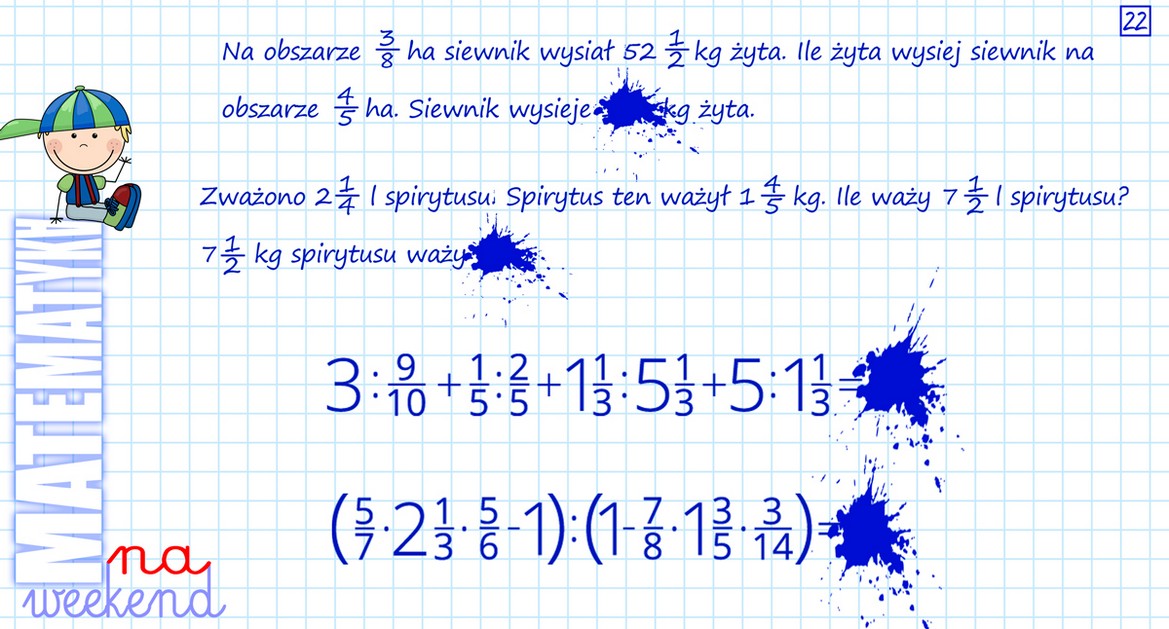 22
Na obszarze 3/8 ha siewnik wysiał 52 1/2 kg żyta. Ile żyta wysiej siewnik na
obszarze 4/5 ha. Siewnik wysieje kg żyta.
Zważono 2 1/4 l spirytusu. Spirytus ten ważył 1 4/5 kg. Ile waży 7 1/2 l spirytusu?
7 1/2 kg spirytusu waży
3 : 9/10 + 1/5 : 2/5 + 1 1/3 : 5 1/3 + 5 : 1 1/3 =
(5/7 · 2 1/3 · 5/6 - 1) : (1 - 7/8 · 1 3/5 · 3/14) =
MATEMATYKA
na
weekend